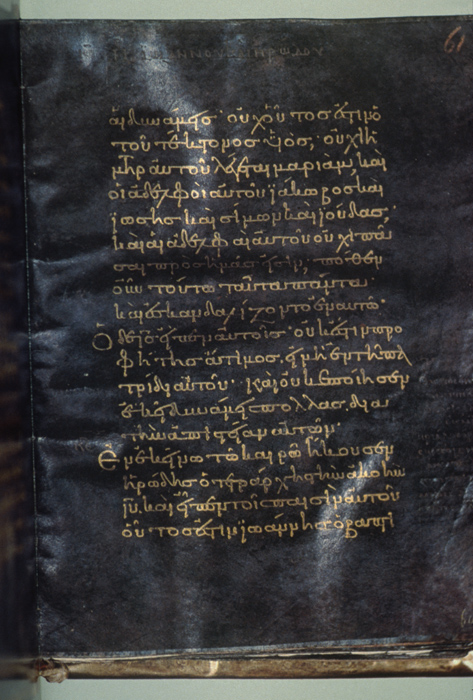 61
αἱ δυνάμεις· οὐχ οὗτός ἐστιν ὁ
τοῦ τέκτονος υἱός; οὐχὶ ἡ
μηρ αὐτοῦ λέγεται μαριάμ, καὶ
οἱ ἀδελφοὶ αὐτοῦ ἰάκωβος καὶ
ἰωσῆς καὶ σίμων καὶ ἰούδας;
καὶ αἱ ἀδελφαὶ αὐτοῦ οὐχὶ πᾶ
σαι πρὸς ἡμᾶς εἰσιν; πόθεν
οὖν τούτω ταῦτα πάντα
καὶ ἐσκανδαλίζοντο ἐν αὐτῶ·
Ὁ δὲ ις εἶπεν αὐτοῖς· οὐκ ἔστιν προ
φήτης ἄτιμος, εἰ μὴ ἐν τῆ πα
τρίδι αὐτοῦ· καὶ οὐκ ἐποίησεν
ἐκεῖ δυνάμεις πολλὰς, διὰ
τὴν ἀπιστίαν αὐτῶν·
Ἐν ἐκείνω τῶ καιρῶ ἤκουσεν
ἡρώδης ὁ τετράρχης τὴν ἀκοὴν
ιυ, καὶ εἶπεν τοῖς παισὶν αὐτοῦ
οὗτός ἐστιν ἰωάννης ὁ βαπτι